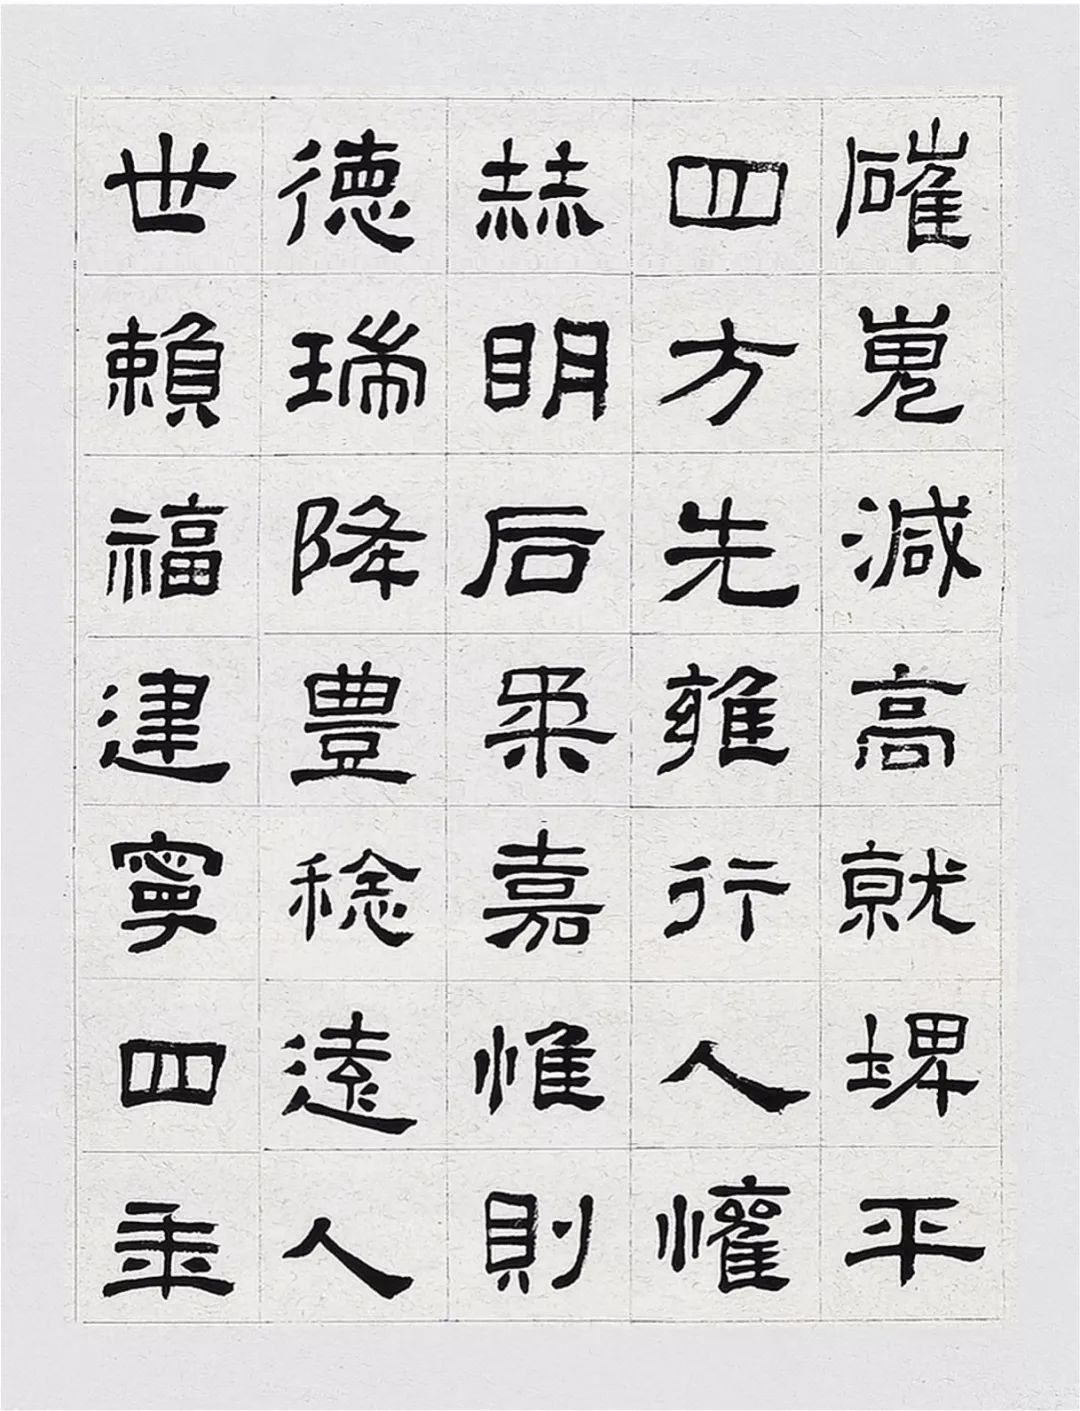 磪嵬減高就埤平
四方先雍行人懽
赫明后柔嘉惟則
德瑞降豊稔遠人
世賴福建寧四年